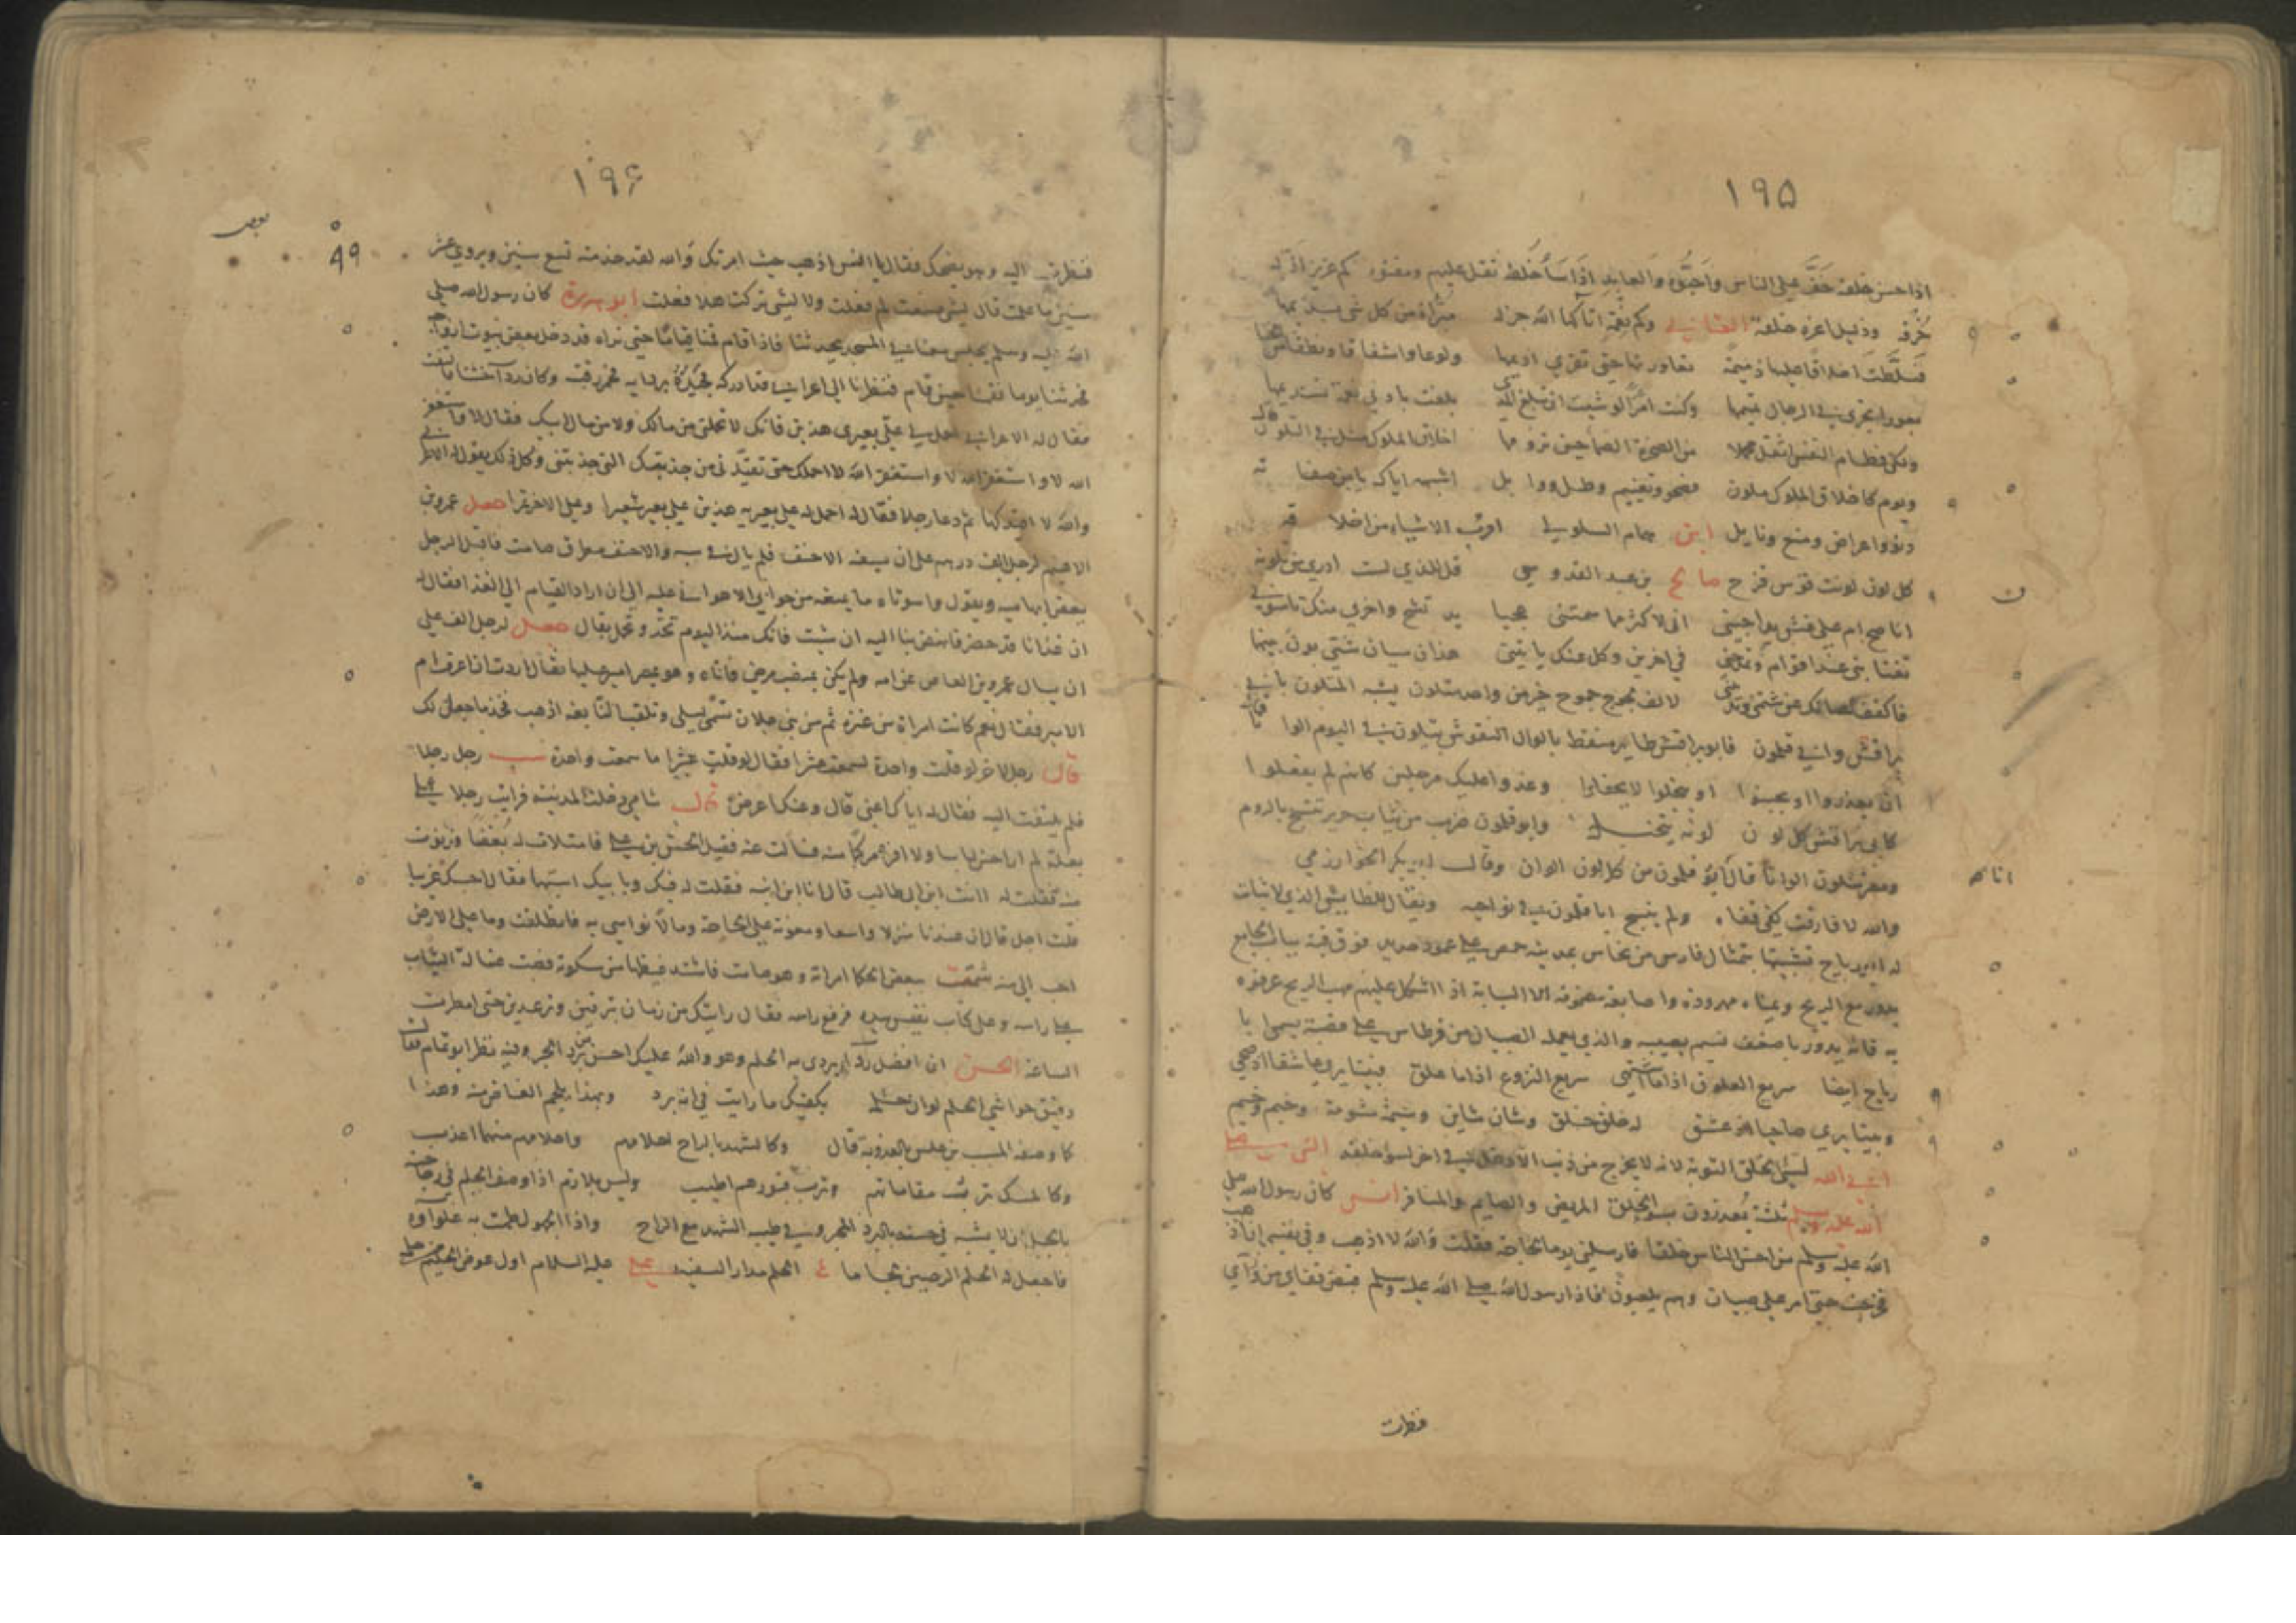 ١٩٥
اذا حسن خلقه خف على الناس واحبوه والعابد اذا ساء خلقه ثقل عليهم ومقتوه كم عزيز اذله
خرقه وذليل اعزه خلقه العتابي وكم نعمة اتاكها الله جزلة مبرأة من كل شيء يذيمها
فسلطت اخلاقا عليها ذميمة تعاورنها حتى تفرى اديمها ولوعا واشفاقا ونطقا من الخنا
بعوراء يجري في الرجال نميمها وكنت امرأ لو شئت ان تبلغ المدى بلغت بادنى نعمة تستديمها
ولكن فطام النفس اثقل محملا من الصخرة الصماء حين ترومها اخلاق الملوك مثل في التلون قال
ويوم كاخلاق الملوك ملون فصحو وتغييم وطل ووابل اشبهه اياك يا من صفاته
دنو واعراض ومنع ونايل ابن همام السلولي اقرب الاشياء من اخلاقه
كل لون لونت قوس قزح صالح بن عبد القدوس قل للذي لست ادري من تلونه
اناصح ام على غش يداجيني اني لاكثر مما سمتني عجبا يد تشج واخرى منك تاسوني
تغتابني عند اقوام وتمدحني في اخرين وكل عنك ياتيني هذان شيئان شتى بون بينهما
فاكفف لسانك عن شتمي وتزييني لالف لجوج جموح خير من واحد متلون يشبه المتلون بابي
براقش وابي قلمون فابو براقش طاير منقط بالوان النقوش يتلون في اليوم الوانا قال
ان يغدروا او يجبنوا او يبخلوا لا يحفلوا وغدوا عليك مرجلين كانهم لم يفعلوا
كابي براقش كل لون لونه يتخيل وابو قلمون ضرب من ثياب حرير تنسج بالروم
ومصر تتلون الوانا قال ابو قلمون من كل لون الوان وقال ابو بكر الخوارزمي
والله لا فارقت كفي قفاه ولم ينسج ابا قلمون في نواحيه ويقال للطايش الذي لا ثبات
له ابو رياح تشبيها بتمثال فارس من نحاس بمدينة حمص على عمود حديد فوق قبة بباب الجامع
يدور مع الريح ويمناه ممدودة واصابعه مضمومة الا السبابة اذا اشكل عليهم مهب الريح عرفوه
به فانه يدور باضعف نسيم يصيبه والذي يعمله الصبيان من قرطاس على قصبة يسمى ابا
رياح ايضا سريع العلوق اذا ما اشتهى سريع النزوع اذا ما علق فبينا يرى عاشقا اذ صحى
وبينا يرى صاحيا اذ عشق له خلق خلق وشان شاين وشيمة مشومة وخيم وخيم
ابى الله لسيئ الخلق التوبة لانه لا يخرج من ذنب الا دخل في اخر لسوء خلقه النبي صلى
الله عليه وسلم ثلثة يعذرون بسوء الخلق المريض والصايم والمسافر انس كان رسول الله صلى
الله عليه وسلم من احسن الناس خلقا فارسلني يوما لحاجة فقلت والله لا اذهب وفي نفسي ان اذهب
فخرجت حتى امر على صبيان وهم يلعبون فاذا رسول الله صلى الله عليه وسلم قبض قفاي من ورآي
فنظرت
١٩۶
٩٩
فنظرت اليه وهو يضحك فقال يا انيس اذهب حيث امرتك والله لقد خدمته تسع سنين ويروى عشر
سنين ما علمته قال لشيء صنعت لم فعلت ولا لشيء تركت هلا فعلت ابو هريرة كان رسول الله صلى
الله عليه وسلم يجلس معنا في المسجد يحدثنا فاذا قام قمنا قياما حتى نراه قد دخل بعض بيوت ازواجه
فحدثنا يوما فقمنا حين قام فنظرنا الى اعرابي قد ادركه فجبذه بردايه فحمر رقبته وكان رداء خشنا فالتفت
فقال له الاعرابي احمل لي على بعيري هذين فانك لا تحملني من مالك ولا من مال ابيك فقال لا واستغفر
الله لا واستغفر الله لا واستغفر الله لا احملك حتى تقيدني من جذبتك التي جذبتني وكل ذلك يقول له الاعرابي
والله لا اقيدكها ثم دعا رجلا فقال له احمل له على بعيريه هذين على بعير شعيرا وعلى الاخر تمرا جعل عمرو بن
الاهتم لرجل الف درهم على ان يسفه الاحنف فلم يال في سبه والاحنف مطرق صامت فاقبل الرجل
يعض ابهاميه ويقول واسوتاه ما يمنعه من جوابي الا هواني عليه الى ان اراد القيام الى الغدا فقال له
ان غدانا قد حضر فانهض بنا اليه ان شئت فانك منذ اليوم تحدو بجمل ثقال جعل لرجل الف على
ان يسال عمرو بن العاص عن امه ولم يكن بمنصب مرضي فاتاه وهو بمصر امير عليها فقال اردت ان اعرف ام
الامير فقال نعم كانت امراة من عنزة ثم من بني جلان تسمى ليلى وتلقب النابغة اذهب فخذ ما جعل لك
قال رجل لاخر لو قلت واحدة لسمعت عشرا فقال لو قلت عشرا ما سمعت واحدة سب رجل رجلا
فلم يلتفت اليه فقال له اياك اعني قال وعنك اعرض قال شامي دخلت المدينة فرايت رجلا على
بغلة لم ار احسن لباسا ولا افره مركبا منه فسالت عنه فقيل الحسن بن علي فامتلات له بغضا فدنوت
منه فقلت له اانت ابن ابي طالب قال انا ابن ابنه فقلت له فيك وبابيك اسبهما فقال احسبك غريبا
قلت اجل قال ان عندنا منزلا واسعا ومعونة على الحاجة ومالا نواسي به فانطلقت وما على الارض
احب الي منه شتمت بعض الحكما امراته وهو صامت فاشتد غيظها من سكوته فصبت غسالة الثياب
على راسه وعلى كتاب نفيس بيده فرفع راسه فقال رايتك من زمان تبرقين وترعدين حتى امطرت
الساعة الحسن ان افضل ردآء يردى به الحلم وهو والله عليك احسن من برد الحبر وفيه نظر ابو تمام فقال
رقيق حواشي الحلم لو ان حلمه بكفيك ما ماريت في انه برد وبهذا يلجم الغاض منه وهذا
كما وصفه المسيب بن علس بالعذوبة قال وكالشهد بالراح احلامهم واحلامهم منهما اعذب
وكالمسك ترب مقاماتهم وترب قبورهم اطيب وليس بلازم اذا وصف الحلم في رجاحته
بالجبل ان لا يشبه في حسنه بالبرد المحبر وفي طيب الشهد مع الراح
فاجعل له الحلم الرصين لجاما ع الحلم مدار السفيه علي عليه السلام اول عوض الحليم من حلمه